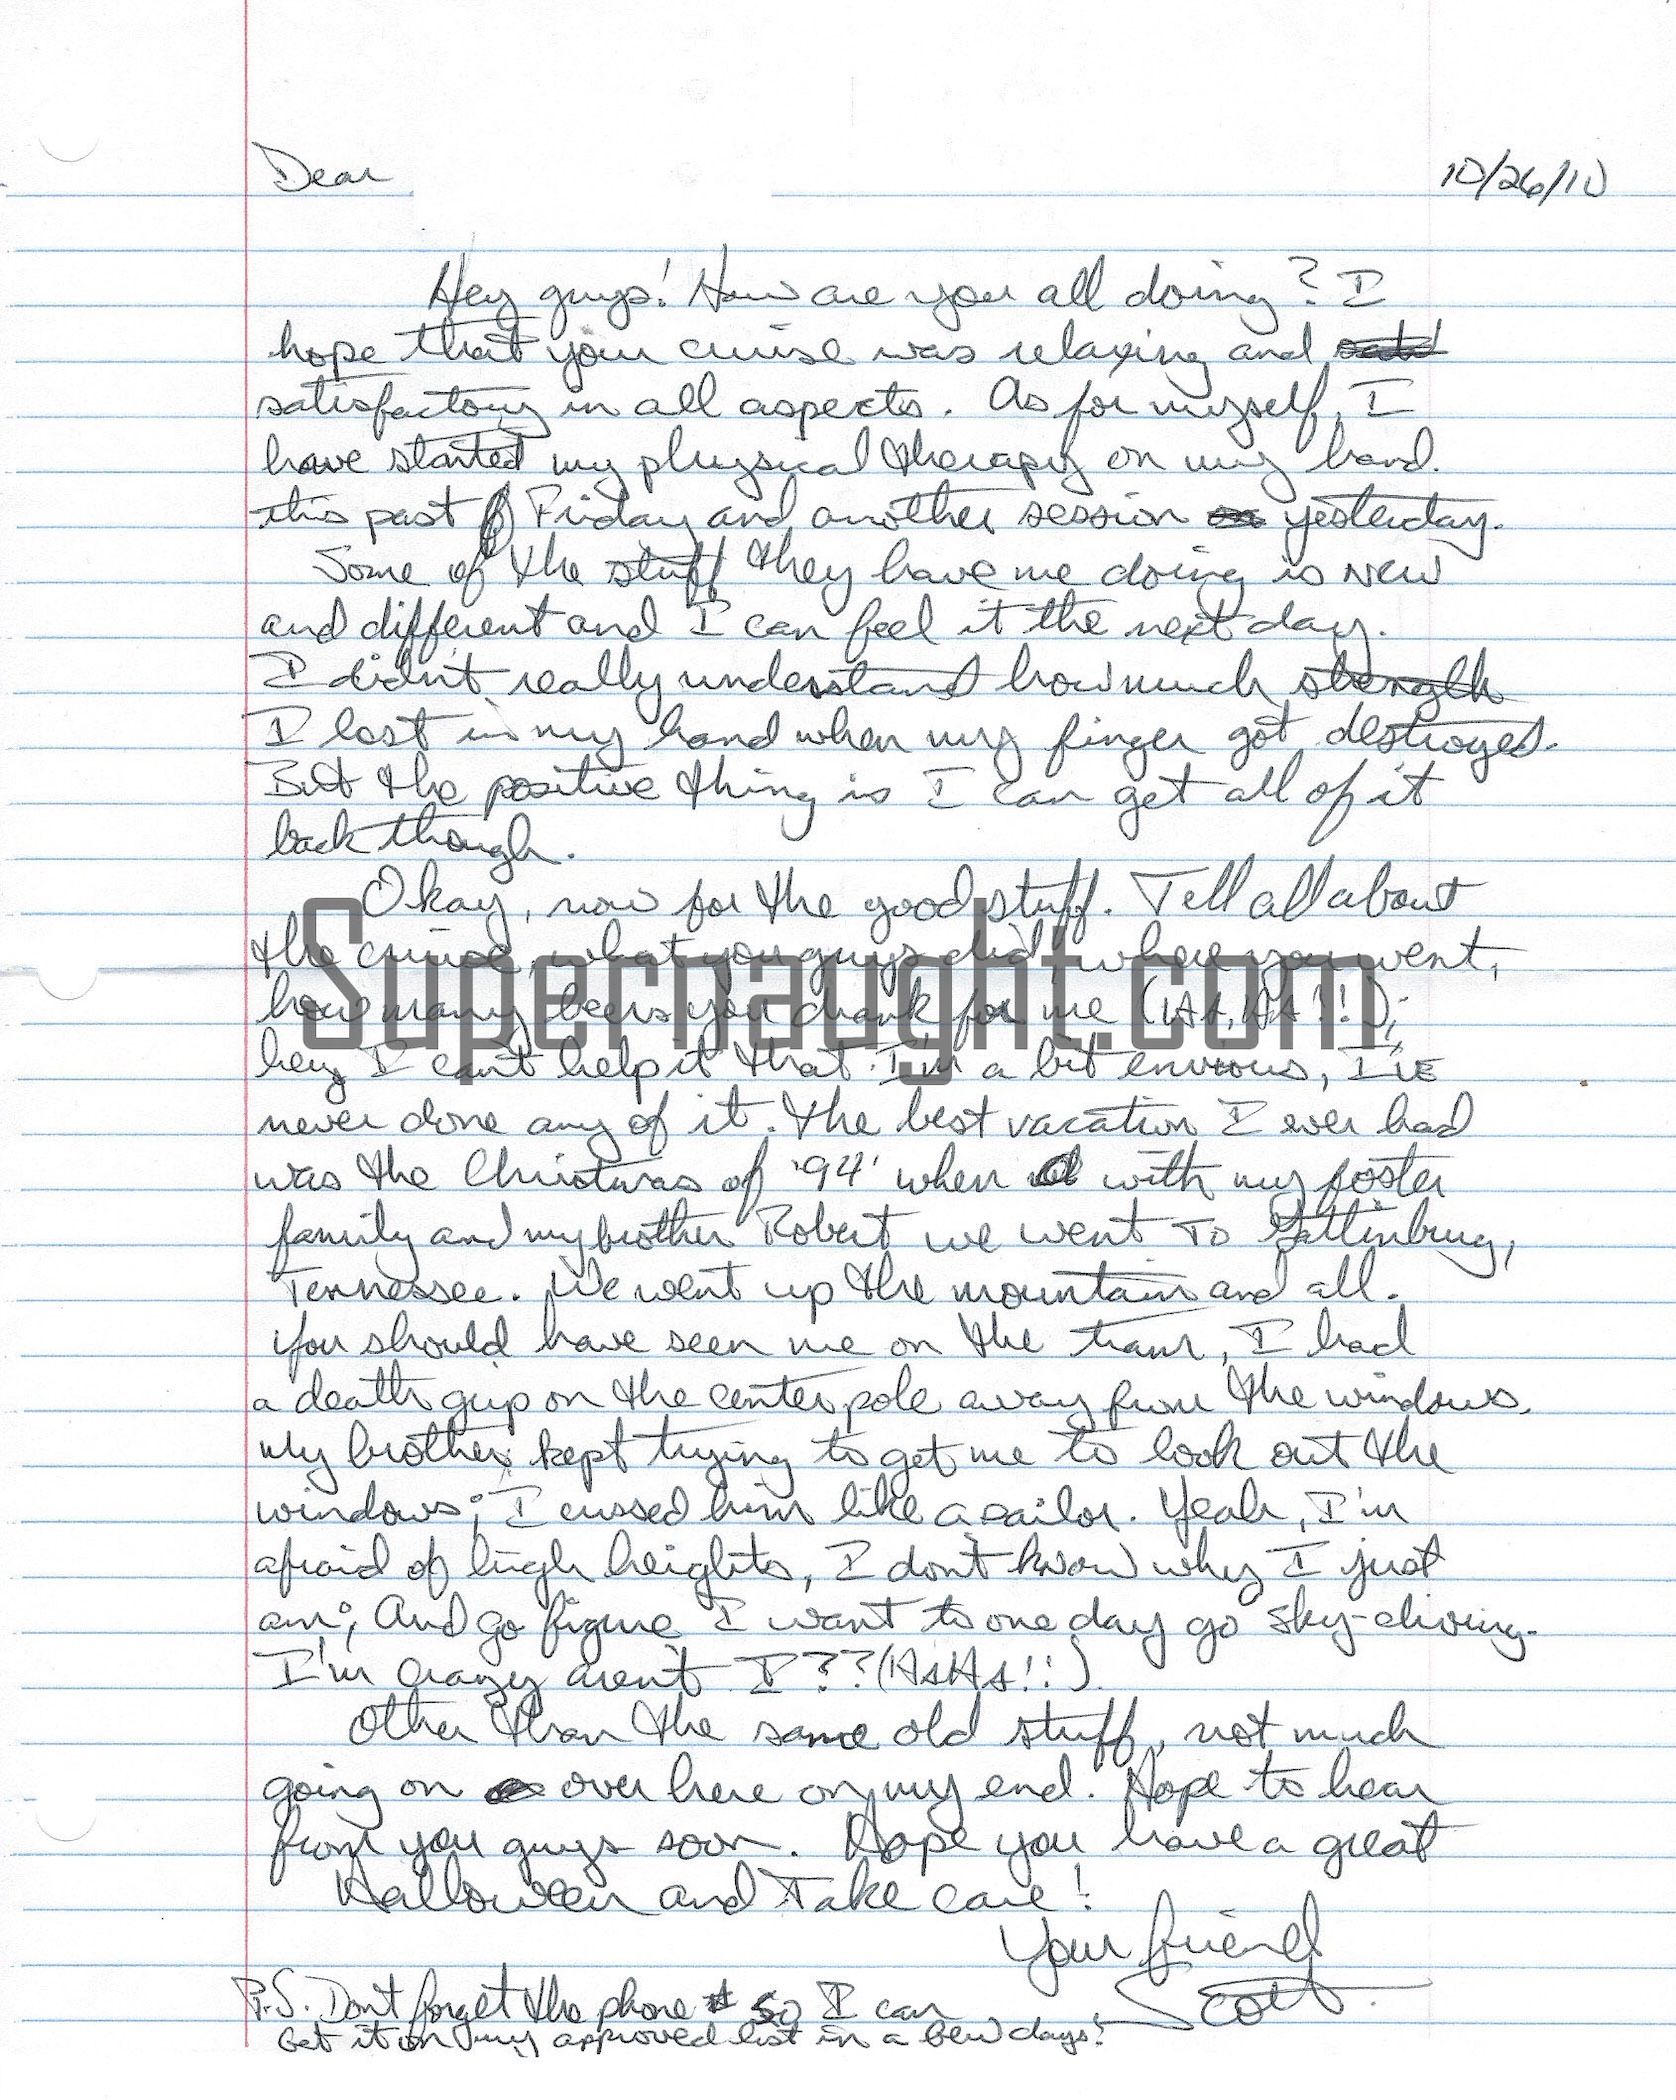 Dear
10/26/10
Hey guys! How are you all doing? I
hope that your cruise was relaxing and
satisfactory in all aspects. As for myself, I
have started my physical therapy on my hand.
this past Friday and another session yesterday.
Some of the stuff they have me doing is new
and different and I can feel it the next day.
I didn't really understand how much strength
I lost in my hand when my finger got destroyed.
But the positive thing is I can get all of it
back though.
Okay, now for the good stuff. Tell all about
the cruise, what you guys did, where you went,
how many beers you drank for me (HA, HA!!);
hey I can't help it that I'm a bit envious, I've
never done any of it. The best vacation I ever had
was the Christmas of '94' when with my foster
family and my brother Robert we went to Gatlinbrug,
Tennessee. We went up the mountain and all.
You should have seen me on the tram, I had
a death grip on the center pole away from the windows.
My brother kept trying to get me to look out the
windows; I cussed him like a sailor. Yeah, I'm
afraid of high heights, I don't know why I just
am; And go figure I want to one day go sky-diving.
I'm crazy aren't I??(HAHA!!).
Other than the same old stuff, not much
going on over here on my end. Hope to hear
from you guys soon. Hope you have a great
Halloween and Take care!
Your friend
Scott
P.S. Don't forget the phone # so I can
get it on my approved list in a few days!
Supernaught.com